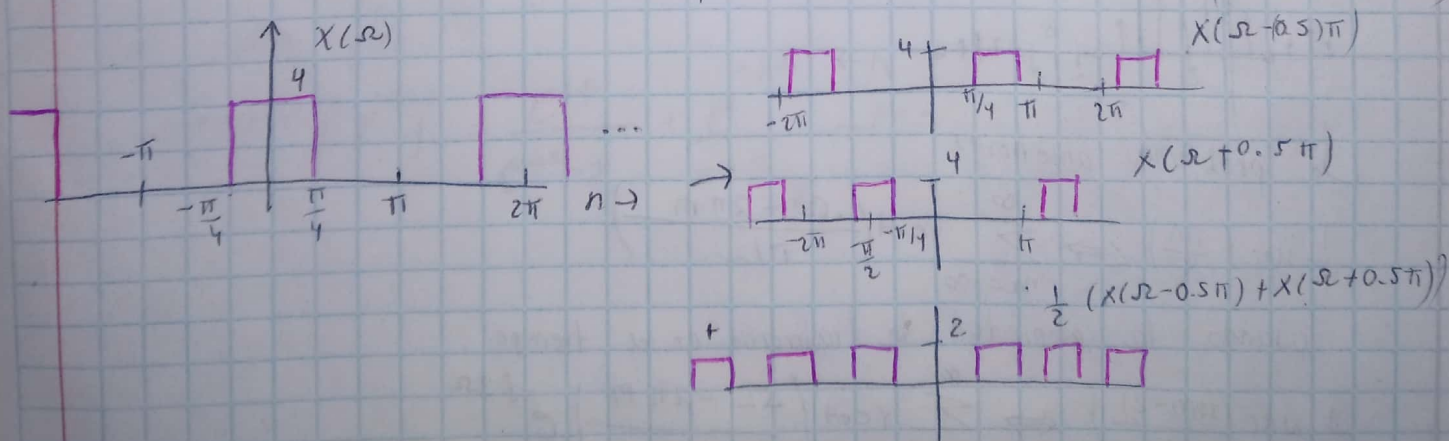 X(Ω)
4
-π
-π/4
π/4
π
2π
n →
....
X(Ω-(0.5)π)
4
-2π
π/4
π
2π
→
X(Ω+0.5π)
4
-2π
-π/2
-π/4
π
1/2 (X(Ω-0.5π)+X(Ω+0.5π))
+
2